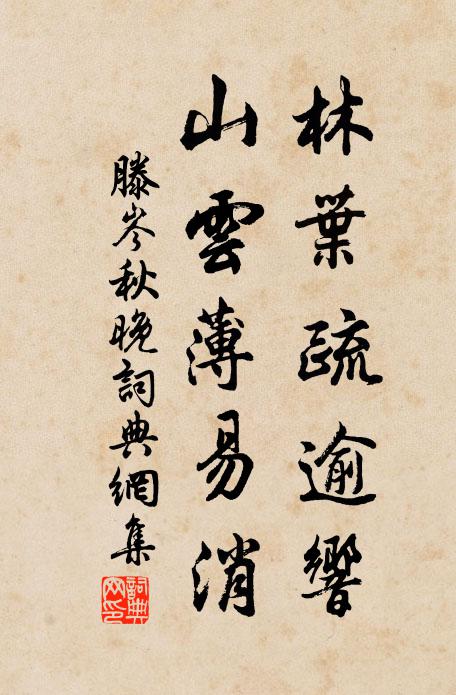 林葉疏逾響
山雲薄易消
滕岑秋晚詞典網集
詞典網印